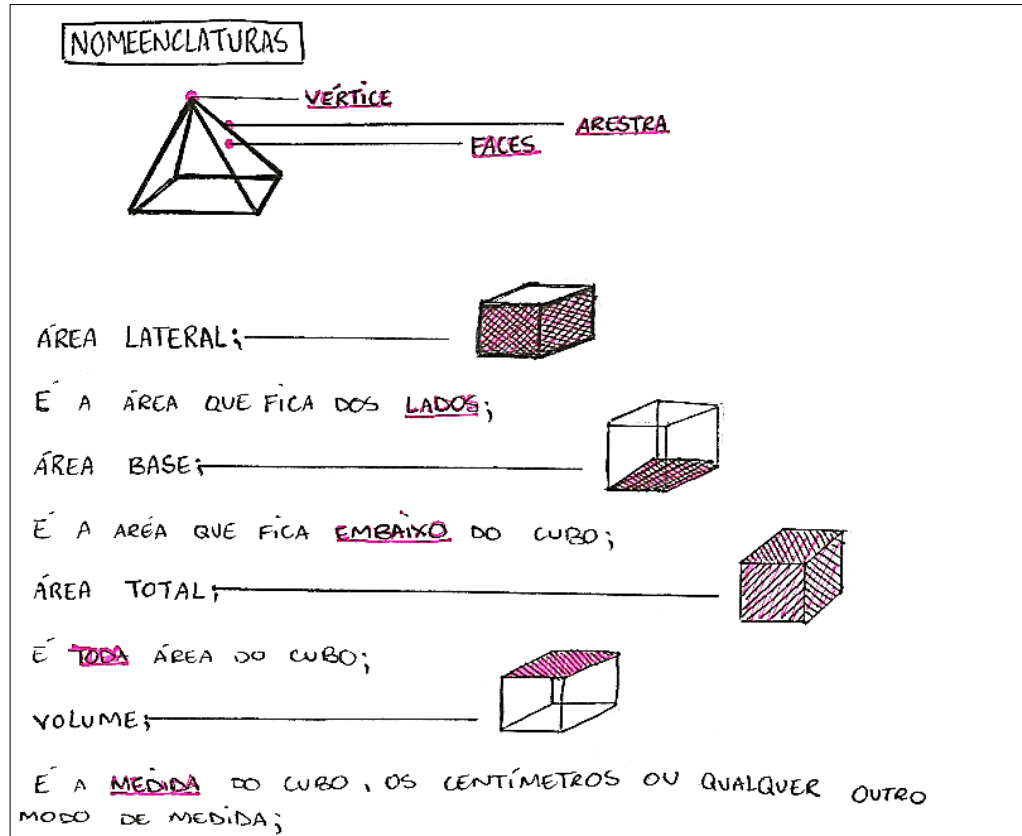 NOMEENCLATURAS
VÉRTICE
ARESTRA
FACES
ÁREA LATERAL;
É A ÁREA QUE FICA DOS LADOS;
ÁREA BASE;
É A AREÁ QUE FICA EMBAIXO DO CUBO;
ÁREA TOTAL;
É TODA ÁREA DO CUBO;
VOLUME;
É A MEDIDA DO CUBO, OS CENTÍMETROS OU QUALQUER OUTRO
MODO DE MEDIDA;